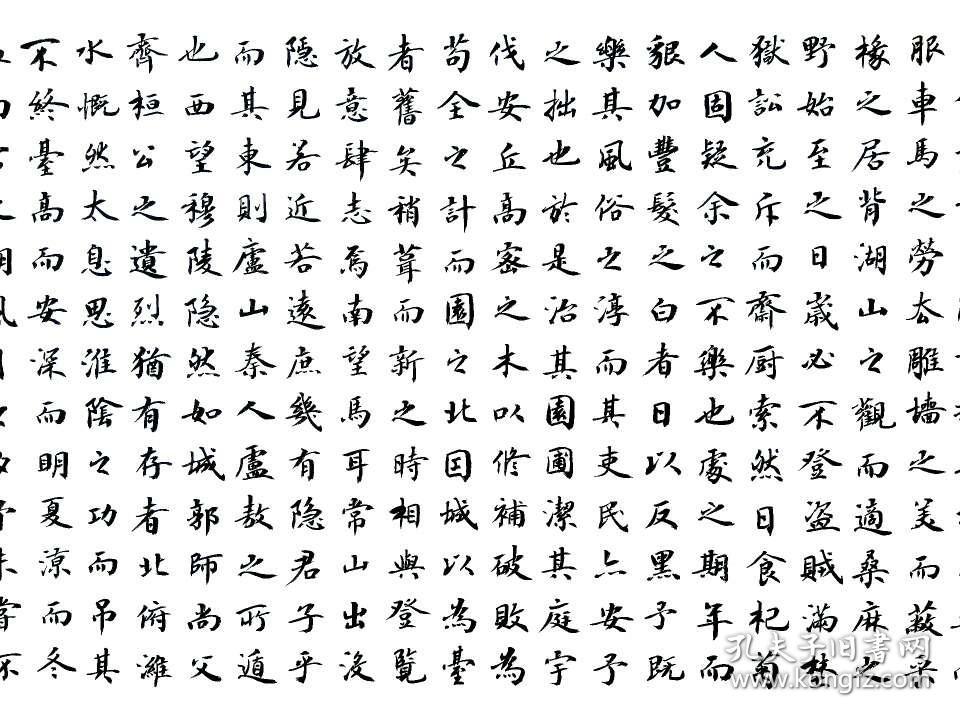 服車馬之勞去雕墻之美而蔽采
椽之居背湖山之觀而適桑麻之
野始至之日歲必不登盜賊滿埜
獄訟充斥而齋厨索然日食杞菊
人固疑余之不樂也處之期年而
貌加豐髮之白者日以反黑予既
樂其風俗之淳而其吏民亦安予
之拙也於是治其園圃潔其庭宇
伐安丘高密之木以修補破敗為
苟全之計而園之北因城以為臺
者舊矣稍葺而新之時相與登覽
放意肆志焉南望馬耳常山出沒
隱見若近若遠庶幾有隱君子乎
而其東則廬山秦人盧敖之所遁
也西望穆陵隱然如城郭師尚父
齊桓公之遺烈猶有存者北俯濰
水慨然太息思淮陰之功而吊其
不終臺高而安深而明夏涼而冬
孔夫子旧书网
www.kongfz.com